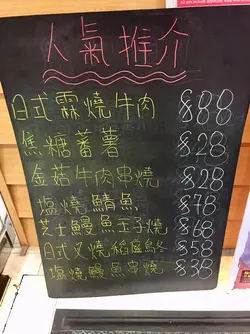 人氣推介
日式霖燒牛肉 $88
焦糖蕃薯 $28
金菇牛肉串燒 $28
塩燒鯖魚 $78
芝士鰻魚玉子燒 $68
日式叉燒稻庭終 $58
塩燒鰻魚串燒 $38